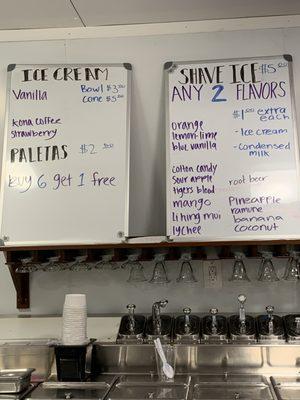 ICE CREAM
Vanilla
Bowl $3.00
Cone $5.00
Kona coffee
Strawberry
PALETAS $2.00
buy 6 get 1 free
SHAVE ICE $5.00
ANY 2 FLAVORS
$1.00 extra each
- Ice cream
- condensed milk
orange
lemon-lime
blue vanilla
cotton candy
sour apple
tigers blood
mango
li hing mui
lychee
root beer
Pineapple
banana
coconut